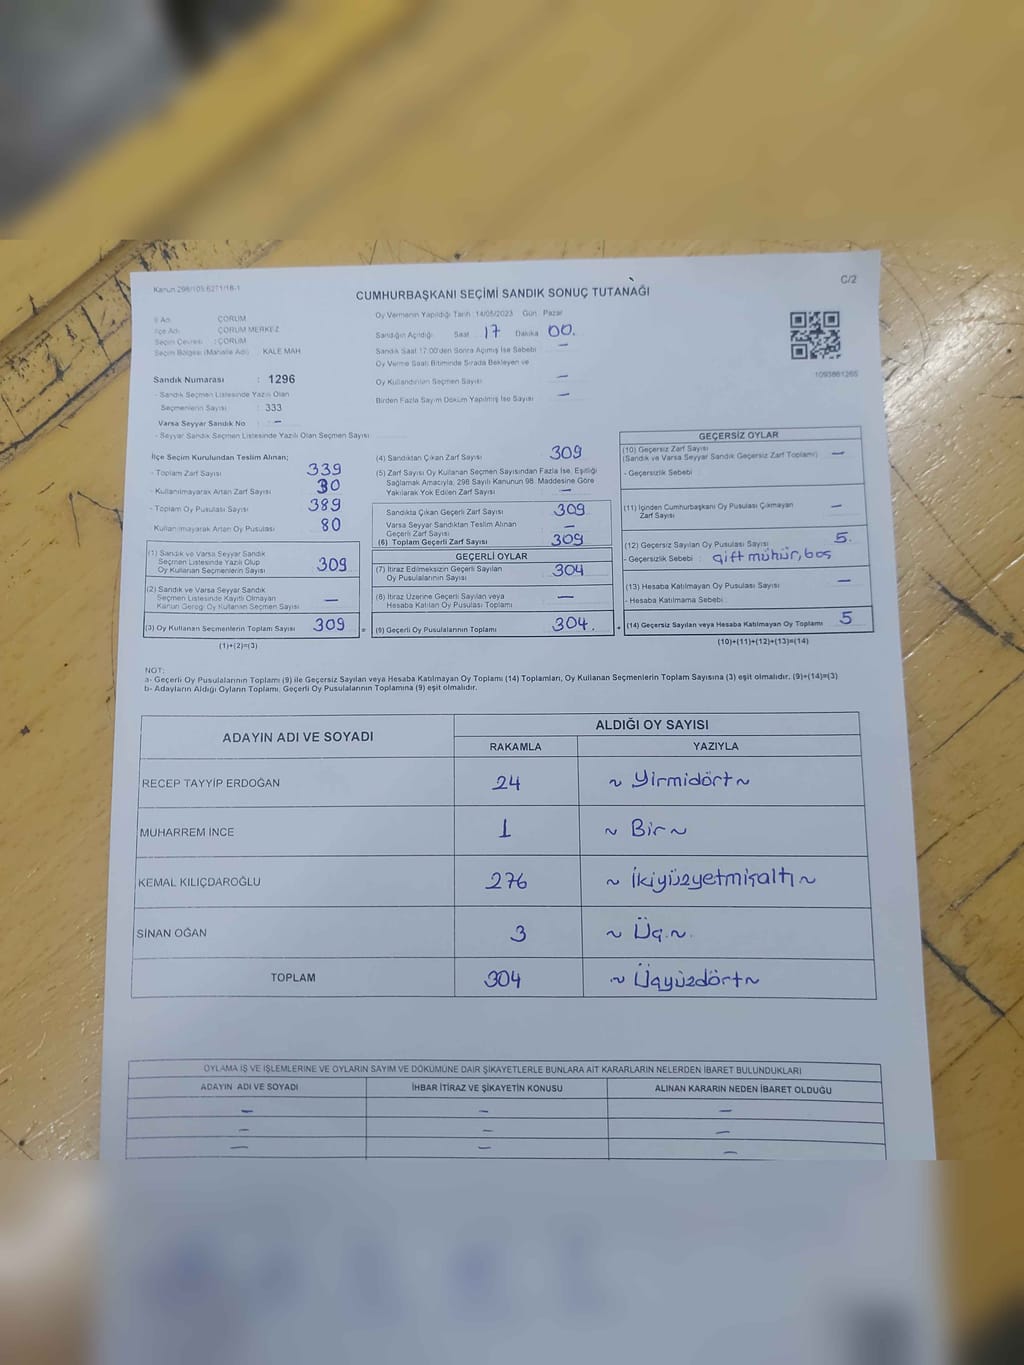 Kanun 298/105 6271/18-1
C/2
CUMHURBAŞKANI SEÇİMİ SANDIK SONUÇ TUTANAĞI
İl Adı : ÇORUM
İlçe Adı : ÇORUM MERKEZ
Seçim Çevresi : ÇORUM
Seçim Bölgesi (Mahalle Adı) : KALE MAH
Sandık Numarası : 1296
- Sandık Seçmen Listesinde Yazılı Olan
Seçmenlerin Sayısı : 333
Varsa Seyyar Sandık No : –
- Seyyar Sandık Seçmen Listesinde Yazılı Olan Seçmen Sayısı
Oy Vermenin Yapıldığı Tarih : 14/05/2023 Gün : Pazar
Sandığın Açıldığı Saat 17 Dakika 00.
Sandık Saat 17:00'den Sonra Açılmış İse Sebebi –
Oy Verme Saati Bitiminde Sırada Bekleyen ve
Oy Kullandırılan Seçmen Sayısı –
Birden Fazla Sayım Döküm Yapılmış İse Sayısı –
1093861265
İlçe Seçim Kurulundan Teslim Alınan;
- Toplam Zarf Sayısı 339
- Kullanılmayarak Artan Zarf Sayısı 30
- Toplam Oy Pusulası Sayısı 389
- Kullanılmayarak Artan Oy Pusulası 80
(1) Sandık ve Varsa Seyyar Sandık
Seçmen Listesinde Yazılı Olup
Oy Kullanan Seçmenlerin Sayısı 309
(2) Sandık ve Varsa Seyyar Sandık
Seçmen Listesinde Kayıtlı Olmayan
Kanun Gereği Oy Kullanan Seçmen Sayısı –
(3) Oy Kullanan Seçmenlerin Toplam Sayısı 309
(1)+(2)=(3)
(4) Sandıktan Çıkan Zarf Sayısı 309
(5) Zarf Sayısı Oy Kullanan Seçmen Sayısından Fazla İse, Eşitliği
Sağlamak Amacıyla, 298 Sayılı Kanunun 98. Maddesine Göre
Yakılarak Yok Edilen Zarf Sayısı –
Sandıkta Çıkan Geçerli Zarf Sayısı 309
Varsa Seyyar Sandıktan Teslim Alınan
Geçerli Zarf Sayısı –
(6) Toplam Geçerli Zarf Sayısı 309
GEÇERLİ OYLAR
(7) İtiraz Edilmeksizin Geçerli Sayılan
Oy Pusulalarının Sayısı 304
(8) İtiraz Üzerine Geçerli Sayılan veya
Hesaba Katılan Oy Pusulası Toplamı –
(9) Geçerli Oy Pusulalarının Toplamı 304.
GEÇERSİZ OYLAR
(10) Geçersiz Zarf Sayısı
(Sandık ve Varsa Seyyar Sandık Geçersiz Zarf Toplamı) –
- Geçersizlik Sebebi :
(11) İçinden Cumhurbaşkanı Oy Pusulası Çıkmayan
Zarf Sayısı –
(12) Geçersiz Sayılan Oy Pusulası Sayısı 5.
- Geçersizlik Sebebi : çift mühür, boş
(13) Hesaba Katılmayan Oy Pusulası Sayısı –
- Hesaba Katılmama Sebebi :
(14) Geçersiz Sayılan veya Hesaba Katılmayan Oy Toplamı 5
(10)+(11)+(12)+(13)=(14)
NOT:
a- Geçerli Oy Pusulalarının Toplamı (9) ile Geçersiz Sayılan veya Hesaba Katılmayan Oy Toplamı (14) Toplamları, Oy Kullanan Seçmenlerin Toplam Sayısına (3) eşit olmalıdır. (9)+(14)=(3)
b- Adayların Aldığı Oyların Toplamı, Geçerli Oy Pusulalarının Toplamına (9) eşit olmalıdır.
ADAYIN ADI VE SOYADI
ALDIĞI OY SAYISI
RAKAMLA YAZIYLA
RECEP TAYYİP ERDOĞAN 24 ~ Yirmidört ~
MUHARREM İNCE 1 ~ Bir ~
KEMAL KILIÇDAROĞLU 276 ~ İkiyüzyetmişaltı ~
SİNAN OĞAN 3 ~ Üç ~
TOPLAM 304 ~ Üçyüzdört ~
OYLAMA İŞ VE İŞLEMLERİNE VE OYLARIN SAYIM VE DÖKÜMÜNE DAİR ŞİKAYETLERLE BUNLARA AİT KARARLARIN NELERDEN İBARET BULUNDUKLARI
ADAYIN ADI VE SOYADI İHBAR İTİRAZ VE ŞİKAYETİN KONUSU ALINAN KARARIN NEDEN İBARET OLDUĞU
– – –
– – –
– – –